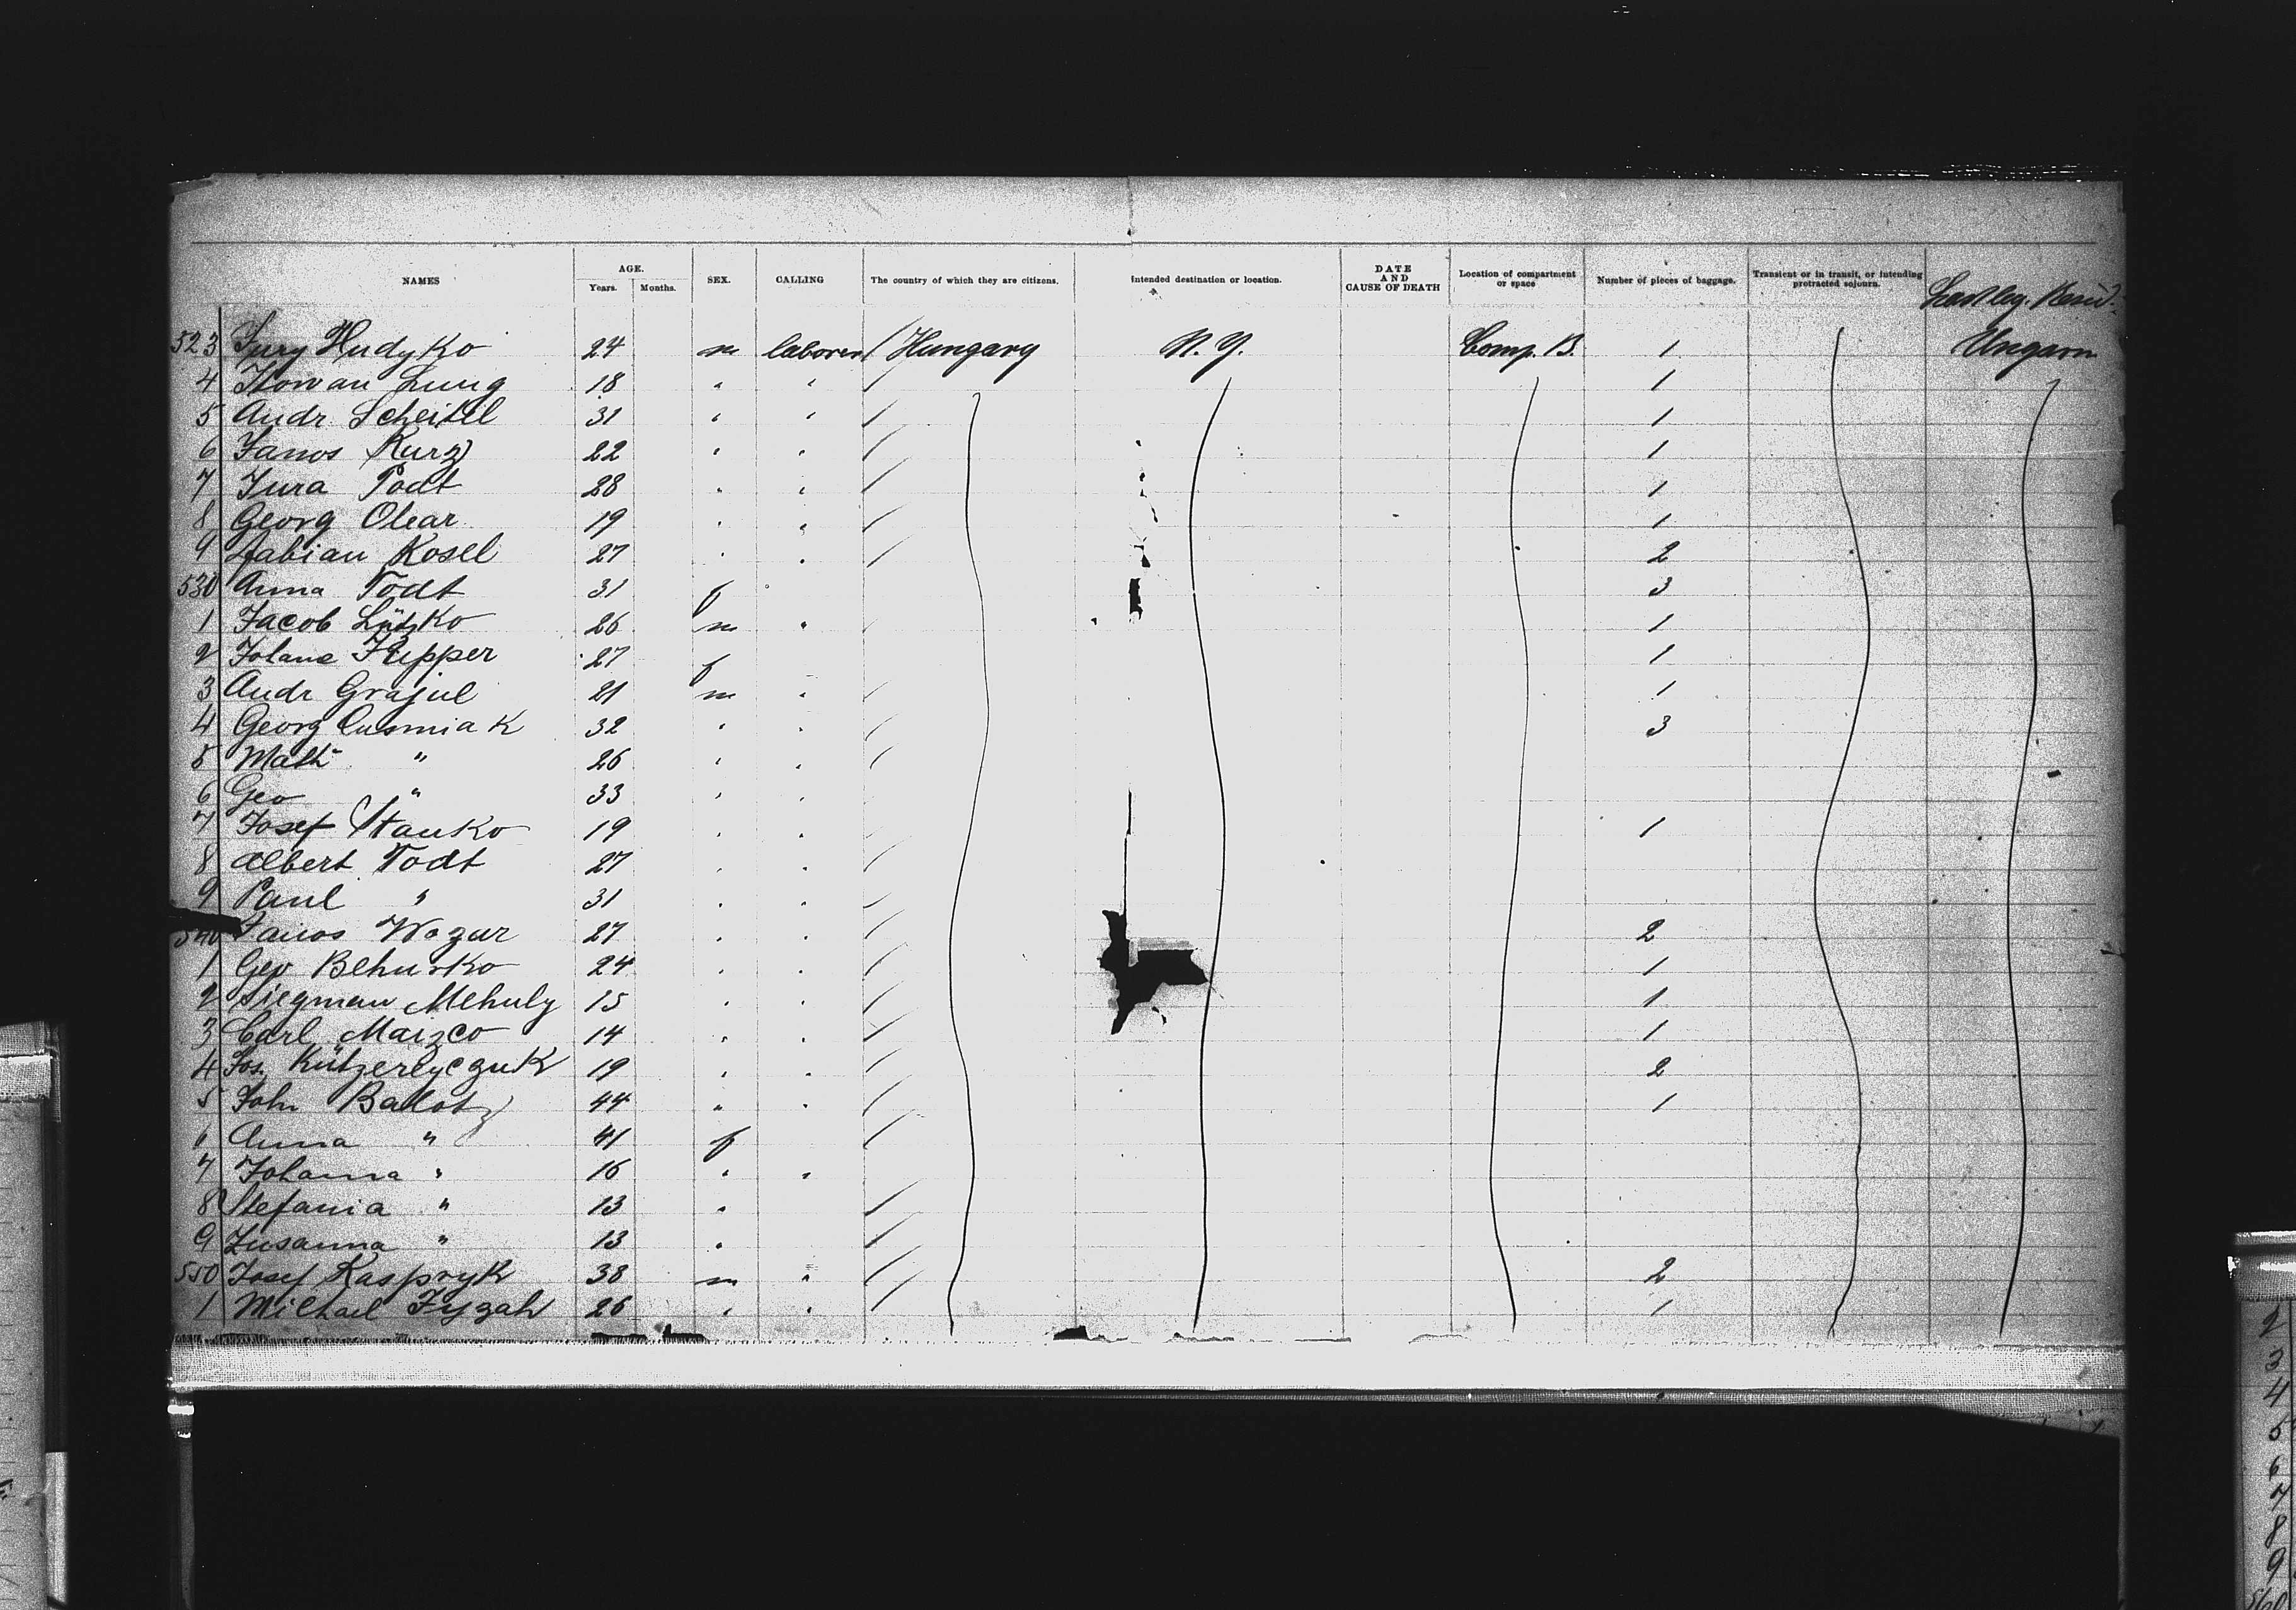 NAMES AGE. Years. Months. SEX. CALLING The country of which they are citizens. Intended destination or location. DATE AND CAUSE OF DEATH Location of compartment or space Number of pieces of baggage. Transient or in transit, or intending protracted sojourn.
523 Hudyko 24 m laborer Hungary N. Y. Comp. B. 1 Ungarn
4 Lung 18 " " 1
5 Andr. Scheitel 31 " " 1
6 Janos Kurz 22 " " 1
7 Jura Todt 28 " " 1
8 Georg Olear 19 " " 1
9 Fabian Kosel 27 " " 2
530 Anna Todt 31 f 3
1 Jacob Lützko 26 m " 1
2 Jolana 27 f 1
3 Andr Grajul 21 m " 1
4 Georg Cusmiak 32 " " 3
5 Math " 26 " "
6 Geo " 33 " "
7 Josef Stanko 19 " " 1
8 Albert Todt 27 " "
9 Paul " 31 " "
540 Janos Wozar 27 " " 2
1 Geo Behurko 24 " " 1
2 Siegman Mehuly 15 " " 1
3 Carl Maizco 14 " " 1
4 Jos. Kützerlyczuk 19 " " 2
5 John Balotz 44 " " 1
6 Anna " 41 f
7 Johanna " 16 " "
8 Stefania " 13 "
9 Zusanna " 13 "
550 Josef Kaspryk 38 m " 2
1 Michael Fyzah 26 " " 1
2
3
4
5
6
7
8
9
560